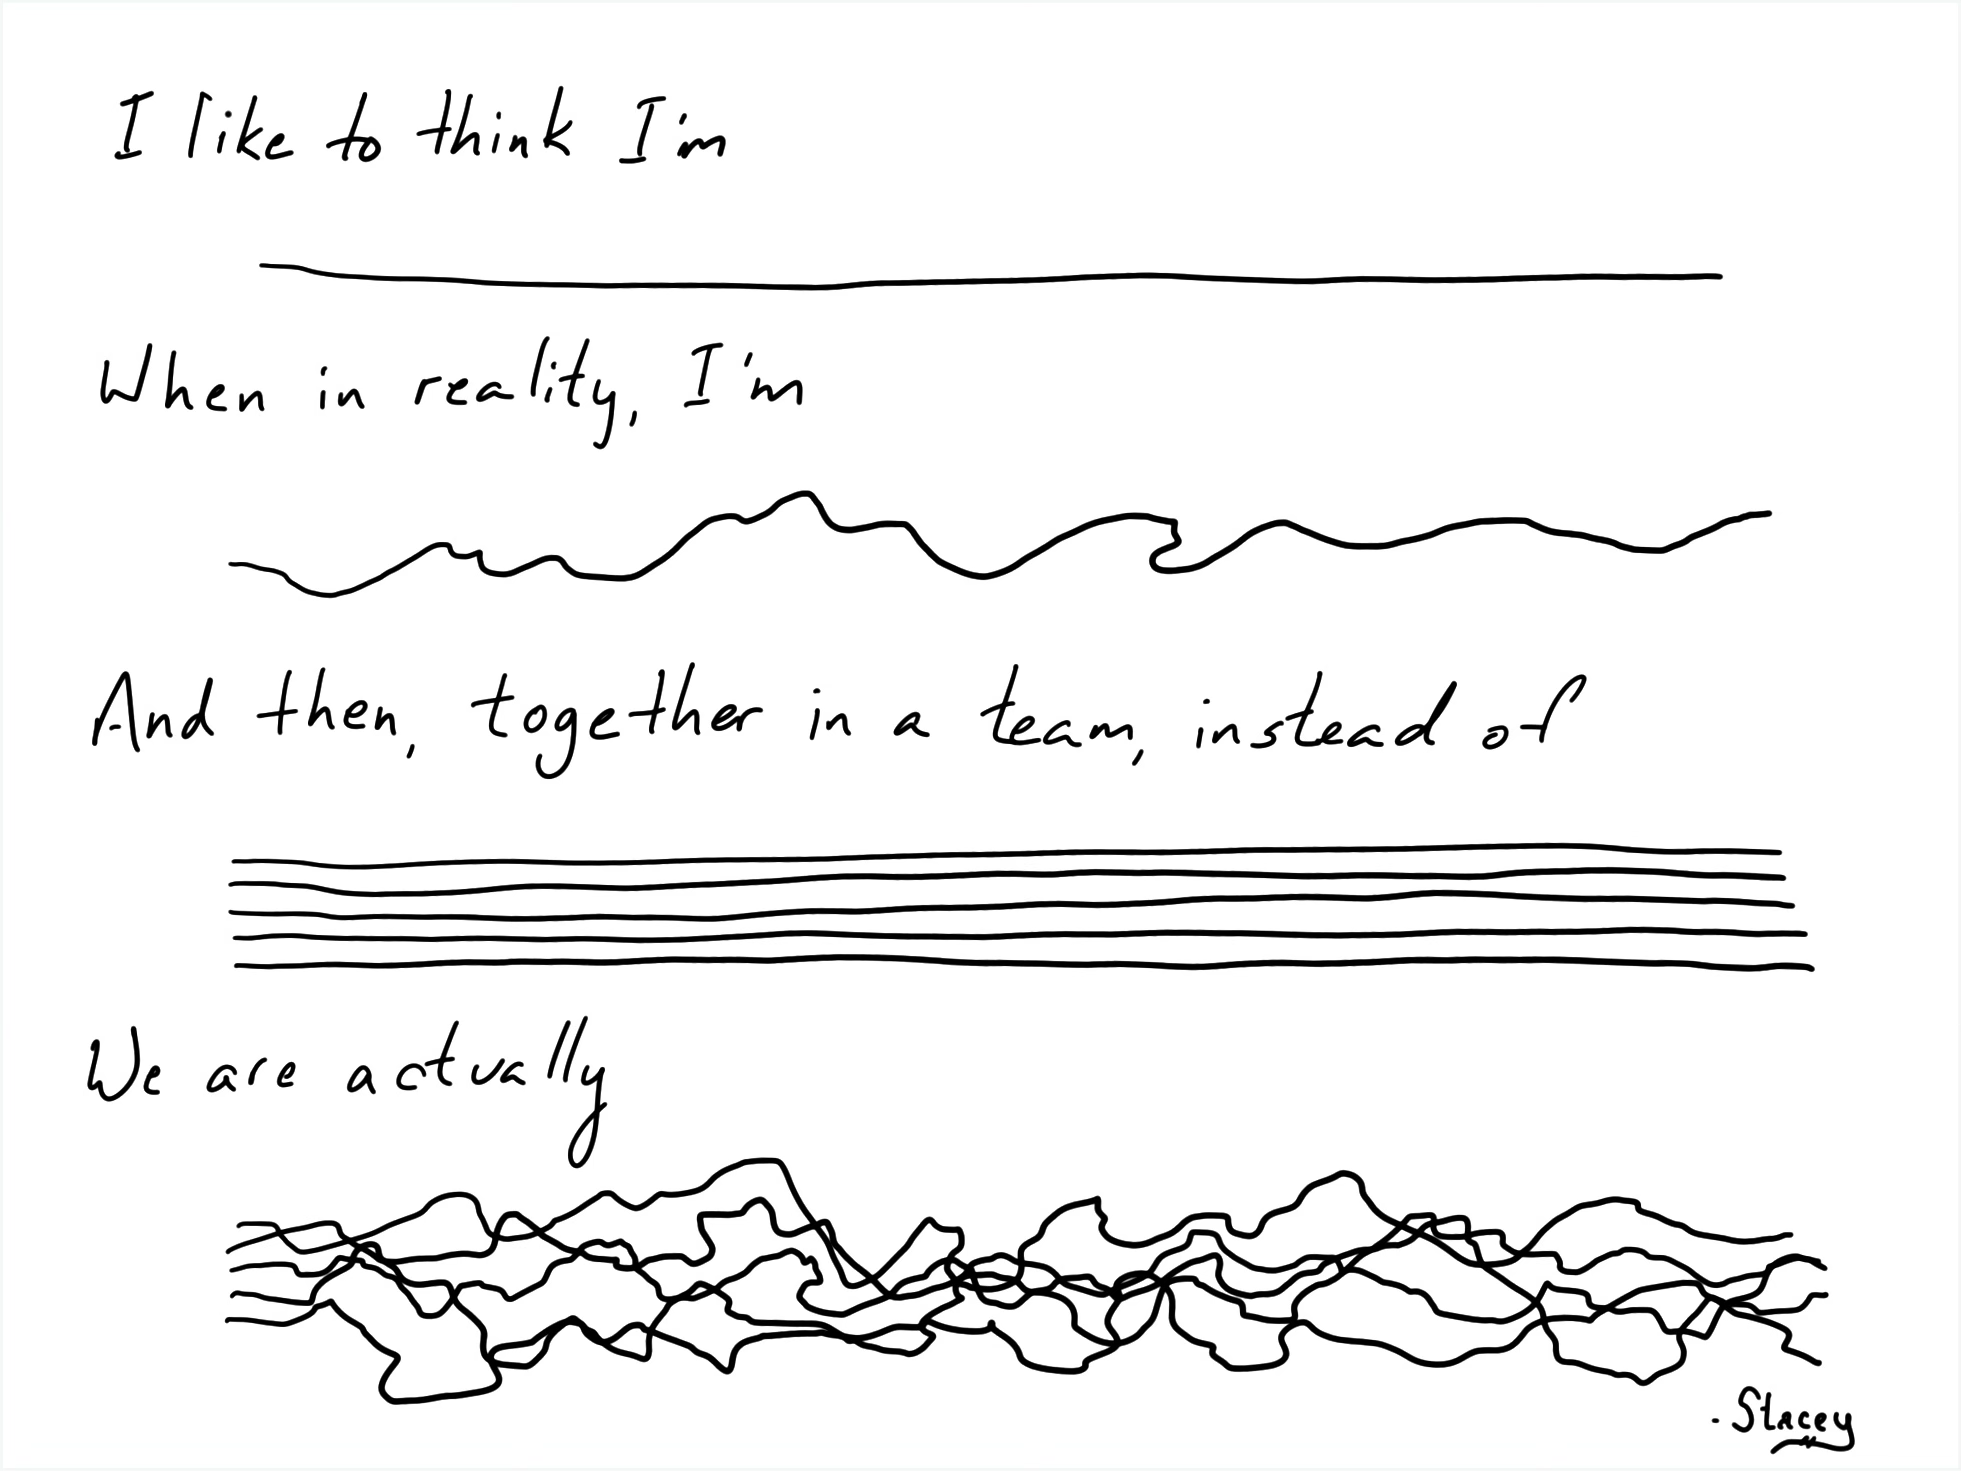 I like to think I'm
When in reality, I'm
And then, together in a team, instead of
We are actually
- Stacey